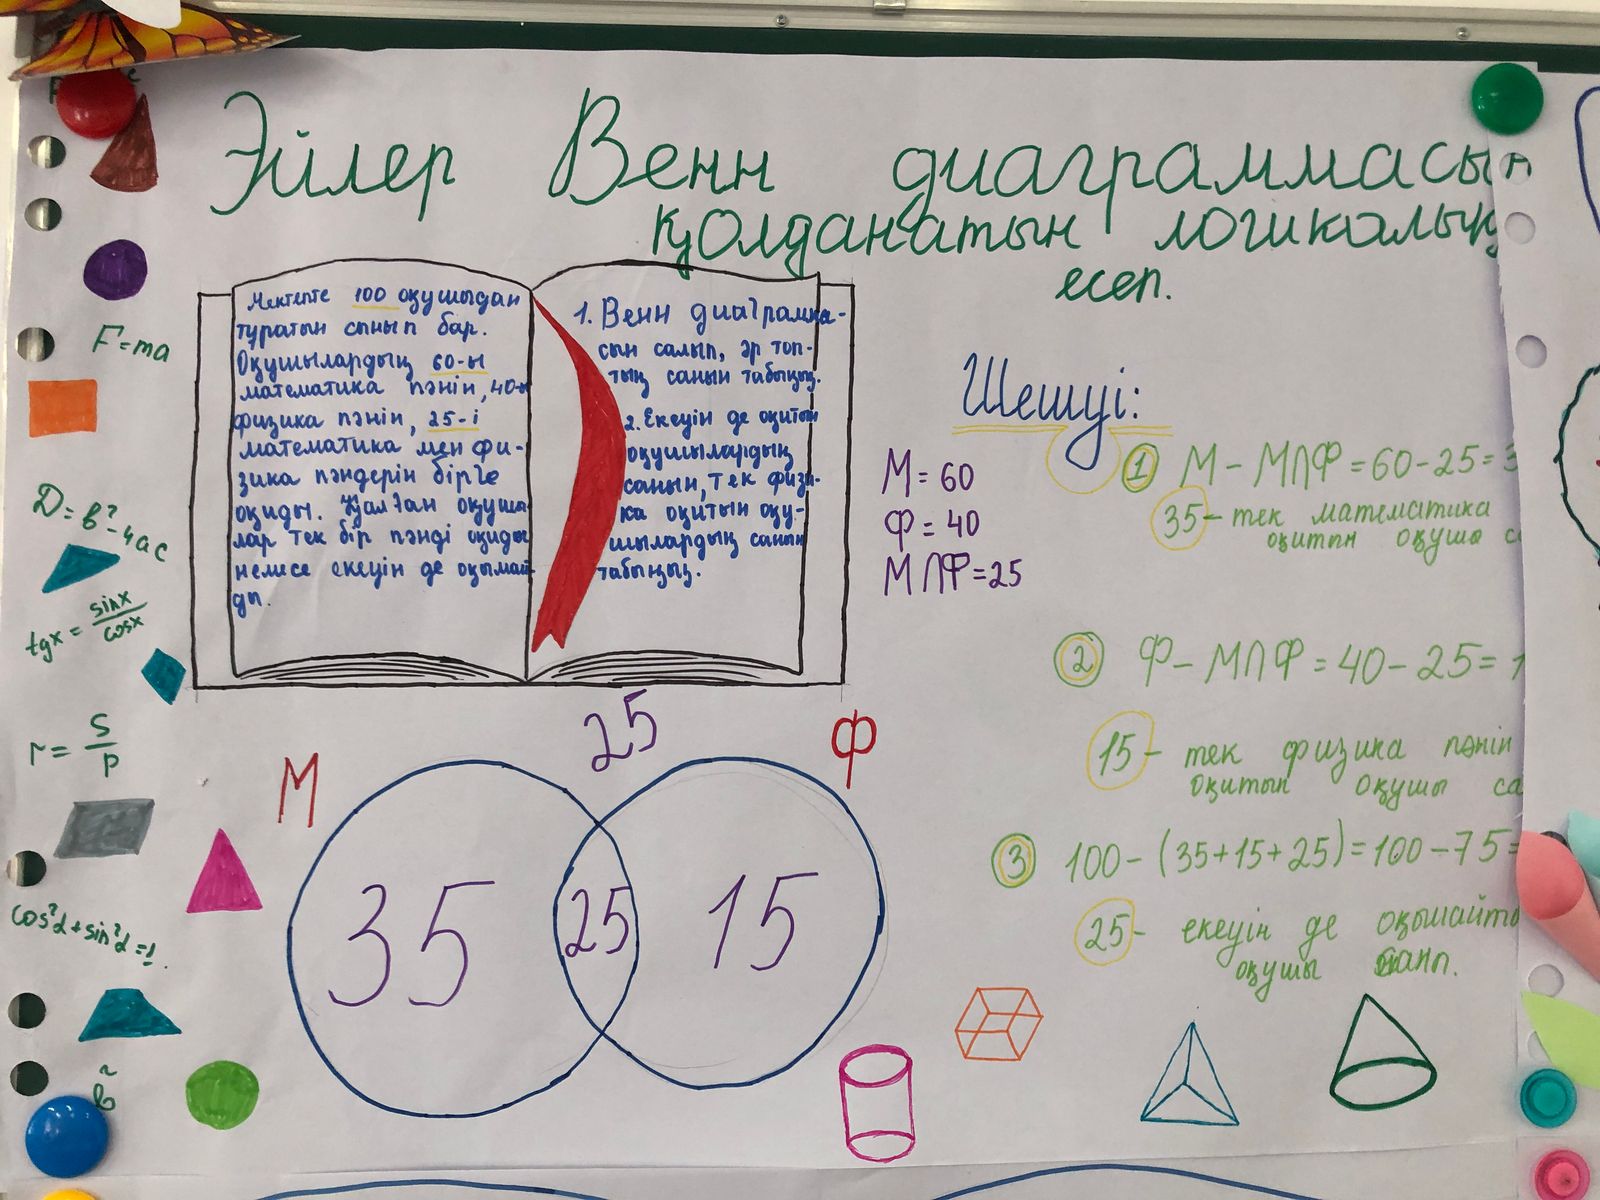 Эйлер Венн диаграммасын
қолданатын логикалық
есеп.
Мектепте 100 оқушыдан
тұратын сынып бар.
Оқушылардың 60-ы
математика пәнін, 40-ы
физика пәнін, 25-і
математика мен фи-
зика пәндерін бірге
оқиды. Қалған оқушы-
лар тек бір пәнді оқиды
немесе екеуін де оқымай-
ды.
1. Венн диаграмма-
сын салып, әр топ-
тың санын табыңыз.
2. Екеуін де оқитын
оқушылардың
санын, тек физи-
ка оқитын оқу-
шылардың санын
табыңыз.
Шешуі:
M = 60
Ф = 40
M∩Ф = 25
1 M - M∩Ф = 60 - 25 = 3
35 - тек математика
оқитын оқушы с
2 Ф - M∩Ф = 40 - 25 = 1
15 - тек физика пәнін
оқитын оқушы са
3 100 - (35+15+25) = 100 - 75 =
25 - екеуін де оқымайто
оқушы саны.
25
M
Ф
35
25
15
F=ma
D=b²-4ac
tgx = sinx/cosx
r = S/p
cos²α+sin²α=1